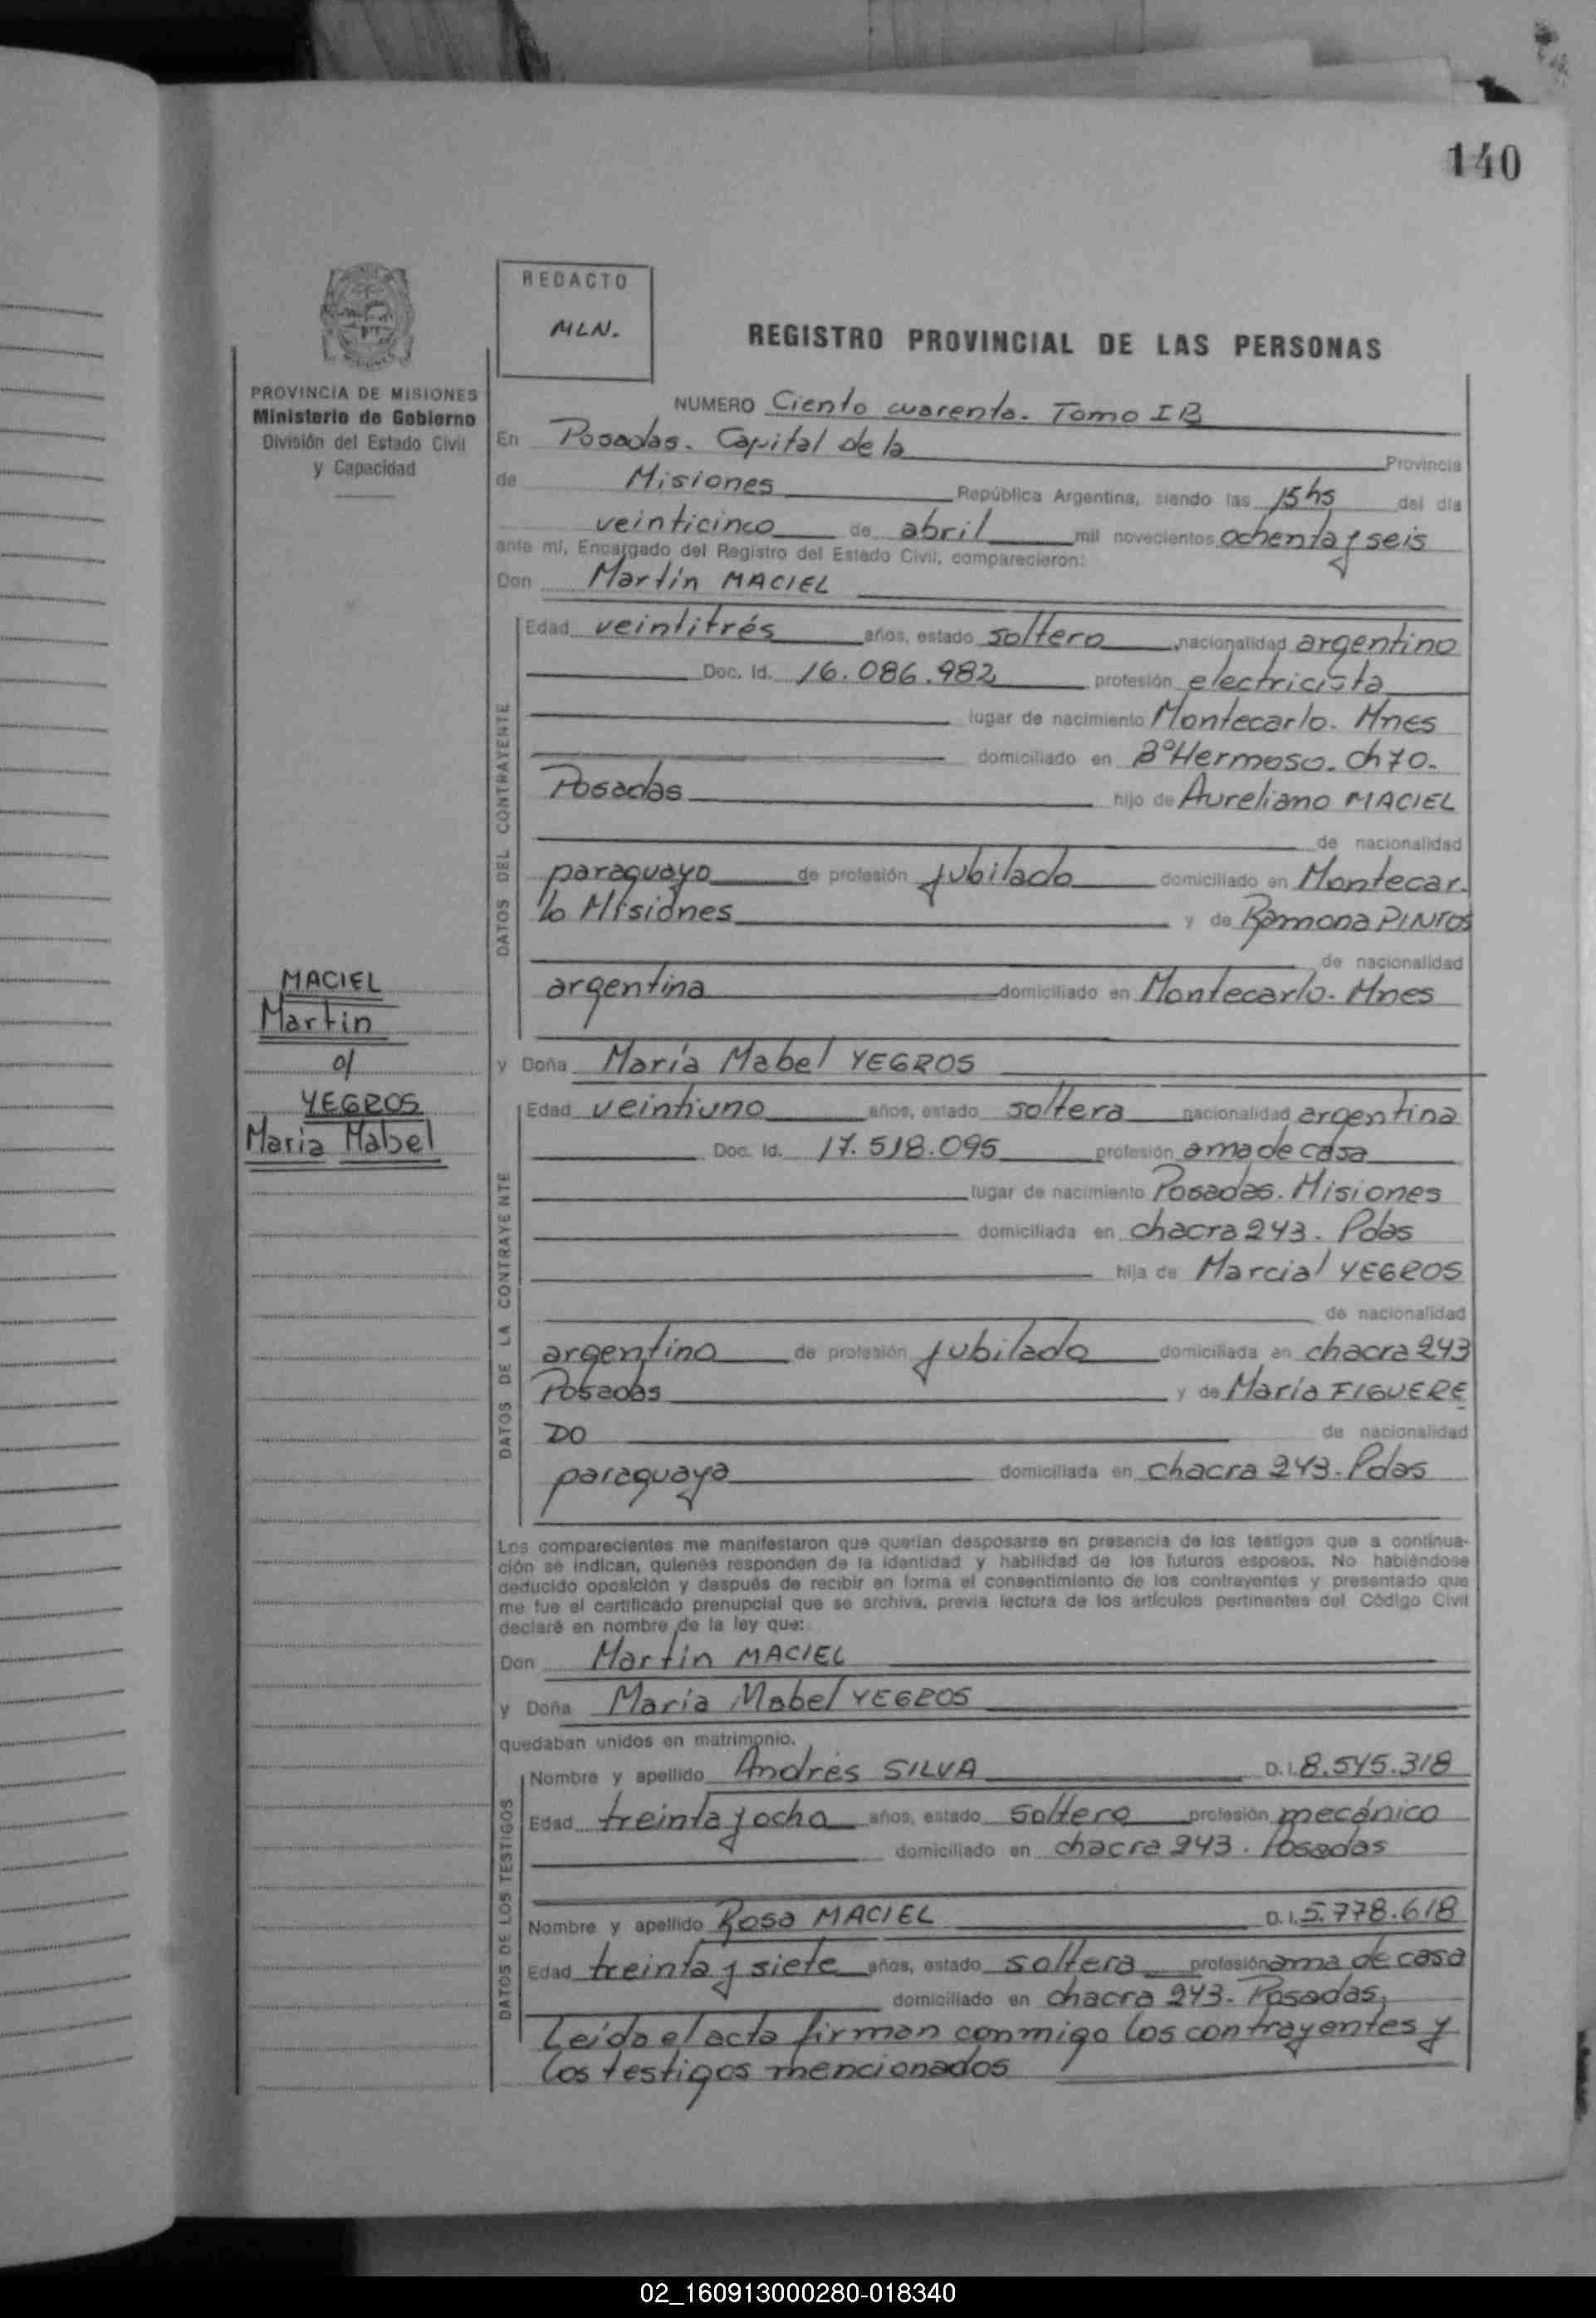 140
REDACTO
MLN.
REGISTRO PROVINCIAL DE LAS PERSONAS
PROVINCIA DE MISIONES
Ministerio de Gobierno
División del Estado Civil
y Capacidad
NUMERO Ciento cuarenta. Tomo I B
En Posadas. Capital de la Provincia
de Misiones República Argentina, siendo las 15hs del día
veinticinco de abril mil novecientos ochenta y seis
ante mí, Encargado del Registro del Estado Civil, comparecieron:
Don Martín MACIEL
DATOS DEL CONTRAYENTE
Edad veintitrés años, estado soltero nacionalidad argentino
Doc. Id. 16.086.982 profesión electricista
lugar de nacimiento Montecarlo. Mnes
domiciliado en Bº Hermoso. Ch 70.
Posadas hijo de Aureliano MACIEL
de nacionalidad
paraguayo de profesión jubilado domiciliado en Montecar.
lo Misiones y de Ramona PINTOS
de nacionalidad
argentina domiciliado en Montecarlo. Mnes
MACIEL
Martin
c/
YEGROS
Maria Mabel
y Doña María Mabel YEGROS
DATOS DE LA CONTRAYENTE
Edad veintiuno años, estado soltera nacionalidad argentina
Doc. Id. 17.518.095 profesión ama de casa
lugar de nacimiento Posadas. Misiones
domiciliada en chacra 243. Pdas
hija de Marcial YEGROS
de nacionalidad
argentino de profesión jubilado domiciliada en chacra 243
Posadas y de María FIGUERE
DO de nacionalidad
paraguaya domiciliada en chacra 243. Pdas
Los comparecientes me manifestaron que querían desposarse en presencia de los testigos que a continua-
ción se indican, quienes responden de la identidad y habilidad de los futuros esposos. No habiéndose
deducido oposición y después de recibir en forma el consentimiento de los contrayentes y presentado que
me fue el certificado prenupcial que se archiva, previa lectura de los artículos pertinentes del Código Civil
declaré en nombre de la ley que:
Don Martín MACIEL
y Doña María Mabel YEGROS
quedaban unidos en matrimonio.
DATOS DE LOS TESTIGOS
Nombre y apellido Andrés SILVA D.I. 8.545.318
Edad treinta y ocho años, estado soltero profesión mecánico
domiciliado en chacra 243. Posadas
Nombre y apellido Rosa MACIEL D.I. 5.778.618
Edad treinta y siete años, estado soltera profesión ama de casa
domiciliado en chacra 243. Posadas.
Leída el acta firman conmigo los contrayentes y
los testigos mencionados
02_160913000280-018340